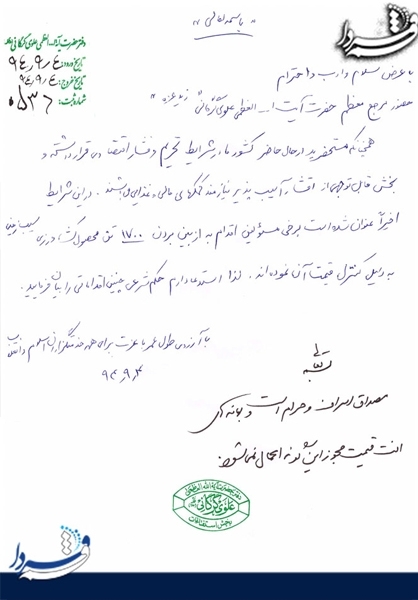 « باسمه تعالی »
دفتر حضرت آیة الله العظمی علوی گرگانی
تاریخ ورود: ۹۴٫۹٫۴
تاریخ خروج: ۹۴٫۹٫۴
شماره ثبت: ۰۵۳۶
با عرض سلام و ادب و احترام
محضر مرجع معظم حضرت آیت ا... العظمی علوی گرگانی
همچنانکه مستحضرید در حال حاضر کشور ما در شرایط تحریم و فشار اقتصادی قرار داشته و
بخش قابل توجهی از اقشار آسیب پذیر نیازمند کمکهای مالی و غذایی می باشند. در این شرایط
اخیراً عنوان شده است برخی مسئولین اقدام به از بین بردن ۱۷۰۰ تن محصول کشاورزی سیب زمینی
به دلیل کنترل قیمت آن نموده اند. لذا استدعا دارم حکم شرعی چنین اقداماتی را بیان فرمایید.
با آرزوی طول عمر با عزت برای همه خدمتگزاران اسلام و انقلاب
۹۴٫۹٫۴
بسمه تعالی
مصداق اسراف و حرام است و بهانه ی
افت قیمت مجوز این گونه اعمال نمی شود.
علوی گرگانی
بخش استفتاءات
فردا
فردا